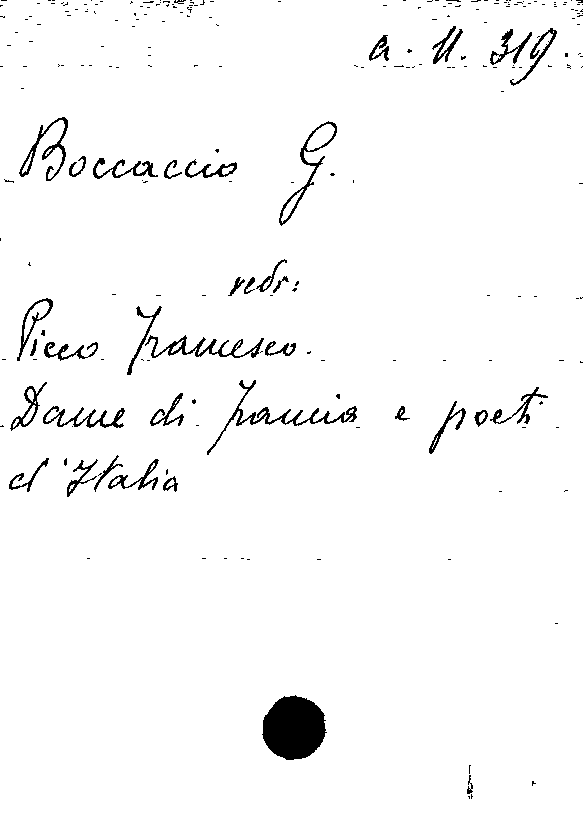 a. 11. 319.
Boccaccio G.
vedi:
Picco Francesco.
Dame di Francia e poeti
d'Italia